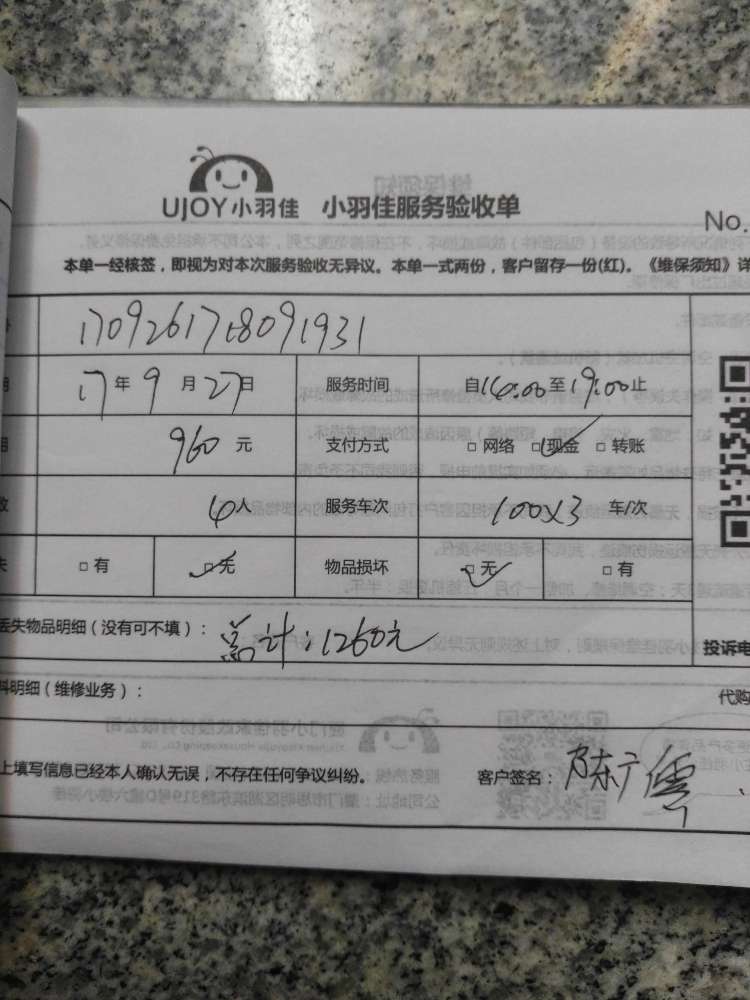 UJOY小羽佳 小羽佳服务验收单
No.
本单一经核签，即视为对本次服务验收无异议。本单一式两份，客户留存一份(红)。《维保须知》详
1709261718091931
17年9月27日 服务时间 自14:00至19:00止
960元 支付方式 □网络 □现金 □转账
4人 服务车次 100x3 车/次
□有 □无 物品损坏 □无 □有
丢失物品明细（没有可不填）： 总计：1260元
投诉电
料明细（维修业务）：
代购
上填写信息已经本人确认无误，不存在任何争议纠纷。 客户签名：陈广